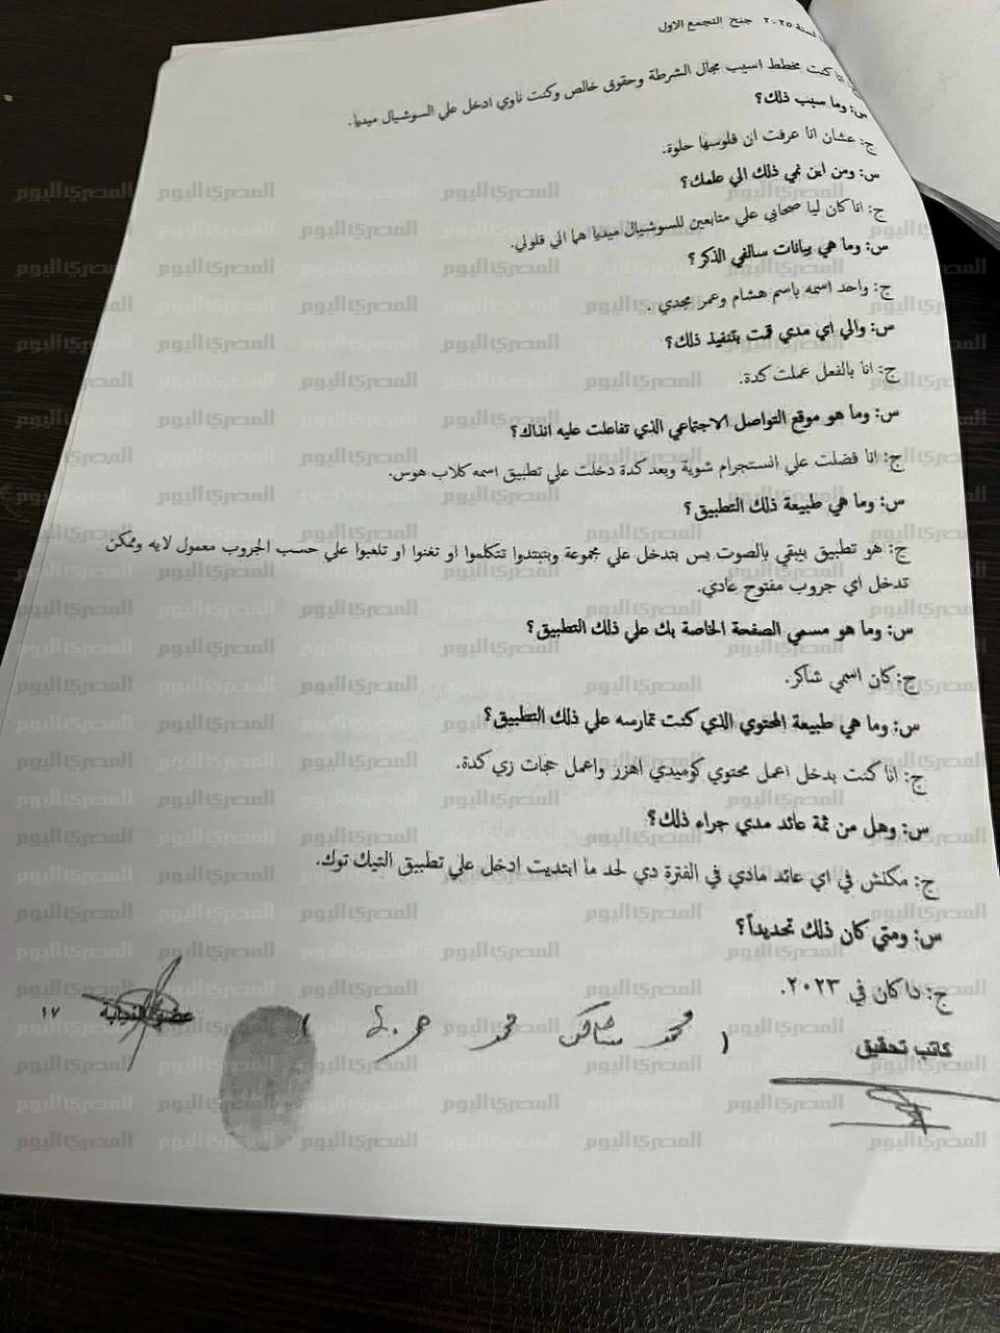 لسنة ٢٠٢٥ جنح التجمع الاول
انا كنت مخطط اسيب مجال الشرطة وحقوق خالص وكنت ناوي ادخل علي السوشيال ميديا.
س: وما سبب ذلك؟
ج: عشان انا عرفت ان فلوسها حلوة.
س: ومن اين نمي ذلك الي علمك؟
ج: انا كان ليا صحابي علي متابعين للسوشيال ميديا هما الي قلولي.
س: وما هي بيانات سالفي الذكر؟
ج: واحد اسمه باسم هشام وعمر مجدي .
س: والي اي مدي قمت بتنفيذ ذلك؟
ج: انا بالفعل عملت كدة.
س: وما هو موقع التواصل الاجتماعي الذي تفاعلت عليه انذاك؟
ج: انا فضلت علي انستجرام شوية وبعد كدة دخلت علي تطبيق اسمه كلاب هوس.
س: وما هي طبيعة ذلك التطبيق؟
ج: هو تطبيق بيبقي بالصوت بس بتدخل علي مجموعة وبتبتدوا تتكلموا او تغنوا او تلعبوا علي حسب الجروب معمول لايه وممكن
تدخل اي جروب مفتوح عادي.
س: وما هو مسمي الصفحة الخاصة بك علي ذلك التطبيق؟
ج: كان اسمي شاكر.
س: وما هي طبيعة المحتوي الذي كنت تمارسه علي ذلك التطبيق؟
ج: انا كنت بدخل اعمل محتوي كوميدي اهزر واعمل حجات زي كدة.
س: وهل من ثمة عائد مدي جراء ذلك؟
ج: مكنش في اي عائد مادي في الفترة دي لحد ما ابتديت ادخل علي تطبيق التيك توك.
س: ومتي كان ذلك تحديداً؟
ج: دا كان في ٢٠٢٣.
كاتب تحقيق
محمد شاكر محمد
عضو النيابة
١٧
المصري اليوم